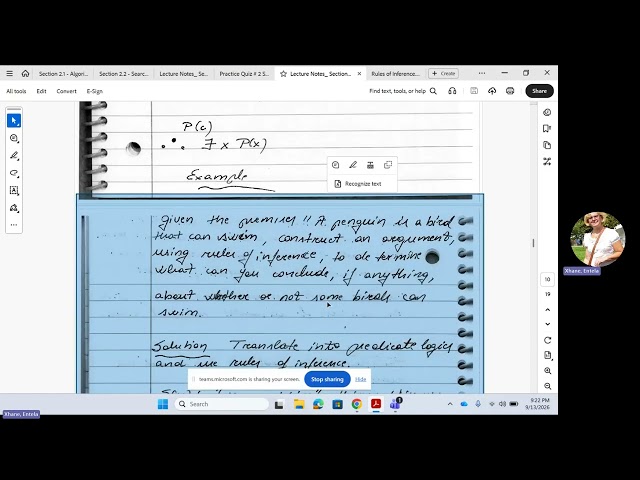 Section 2.1 - Algori...
Section 2.2 - Searc...
Lecture Notes_ Se...
Practice Quiz # 2 S...
Lecture Notes_ Section...
Rules of Inference...
+ Create
All tools Edit Convert E-Sign
Find text, tools, or help
Share
P(c)
∴ ∃ x P(x)
Example
Recognize text
given the premises " A penguin is a bird
that can swim, construct an argument,
using rules of inference, to determine
what can you conclude, if anything,
about whether or not some birds can
swim.
Solution Translate into predicate logic
and use rules of inference.
teams.microsoft.com is sharing your screen.
Stop sharing
Hide
10
19
Xhane, Entela
Search
9:22 PM
9/13/2026
Xhane, Entela